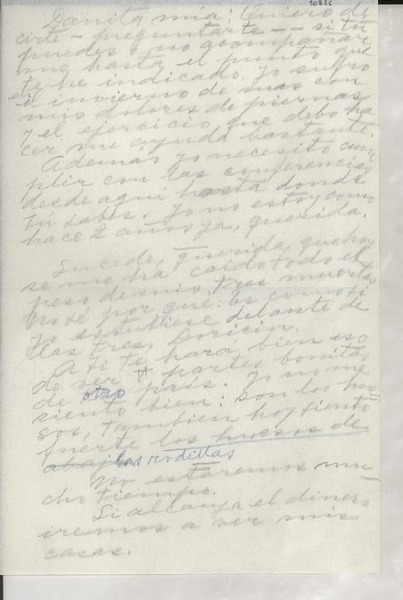 10826
Danita mía: Quiero de-
cirte - preguntarte - si tú
puedes o no acompañar-
me hasta el punto que
te he indicado. Yo sufro
el invierno de mas con
mis dolores de piernas
y el ejercicio que debo ha-
cer me ayuda bastante.
Además yo necesito cum-
plir con las conferencias
desde aquí hasta donde
tú sabes. Yo no estoy como
hace 2 años ya, querida.
Sucede, querida, que hoy
se me ha caído todo el
peso de mis tres muertos
No sé por qué: es como si
yo estubiese delante de
las tres,
A ti te hará bien eso
de ver partes bonitas
de otro país. Yo no me
siento bien: son los hue-
sos, también hoy siento
fuerte los huesos de
abajo las rodillas
No estaremos mu-
cho tiempo.
Si alcanza el dinero
iremos a ver mis
casas.